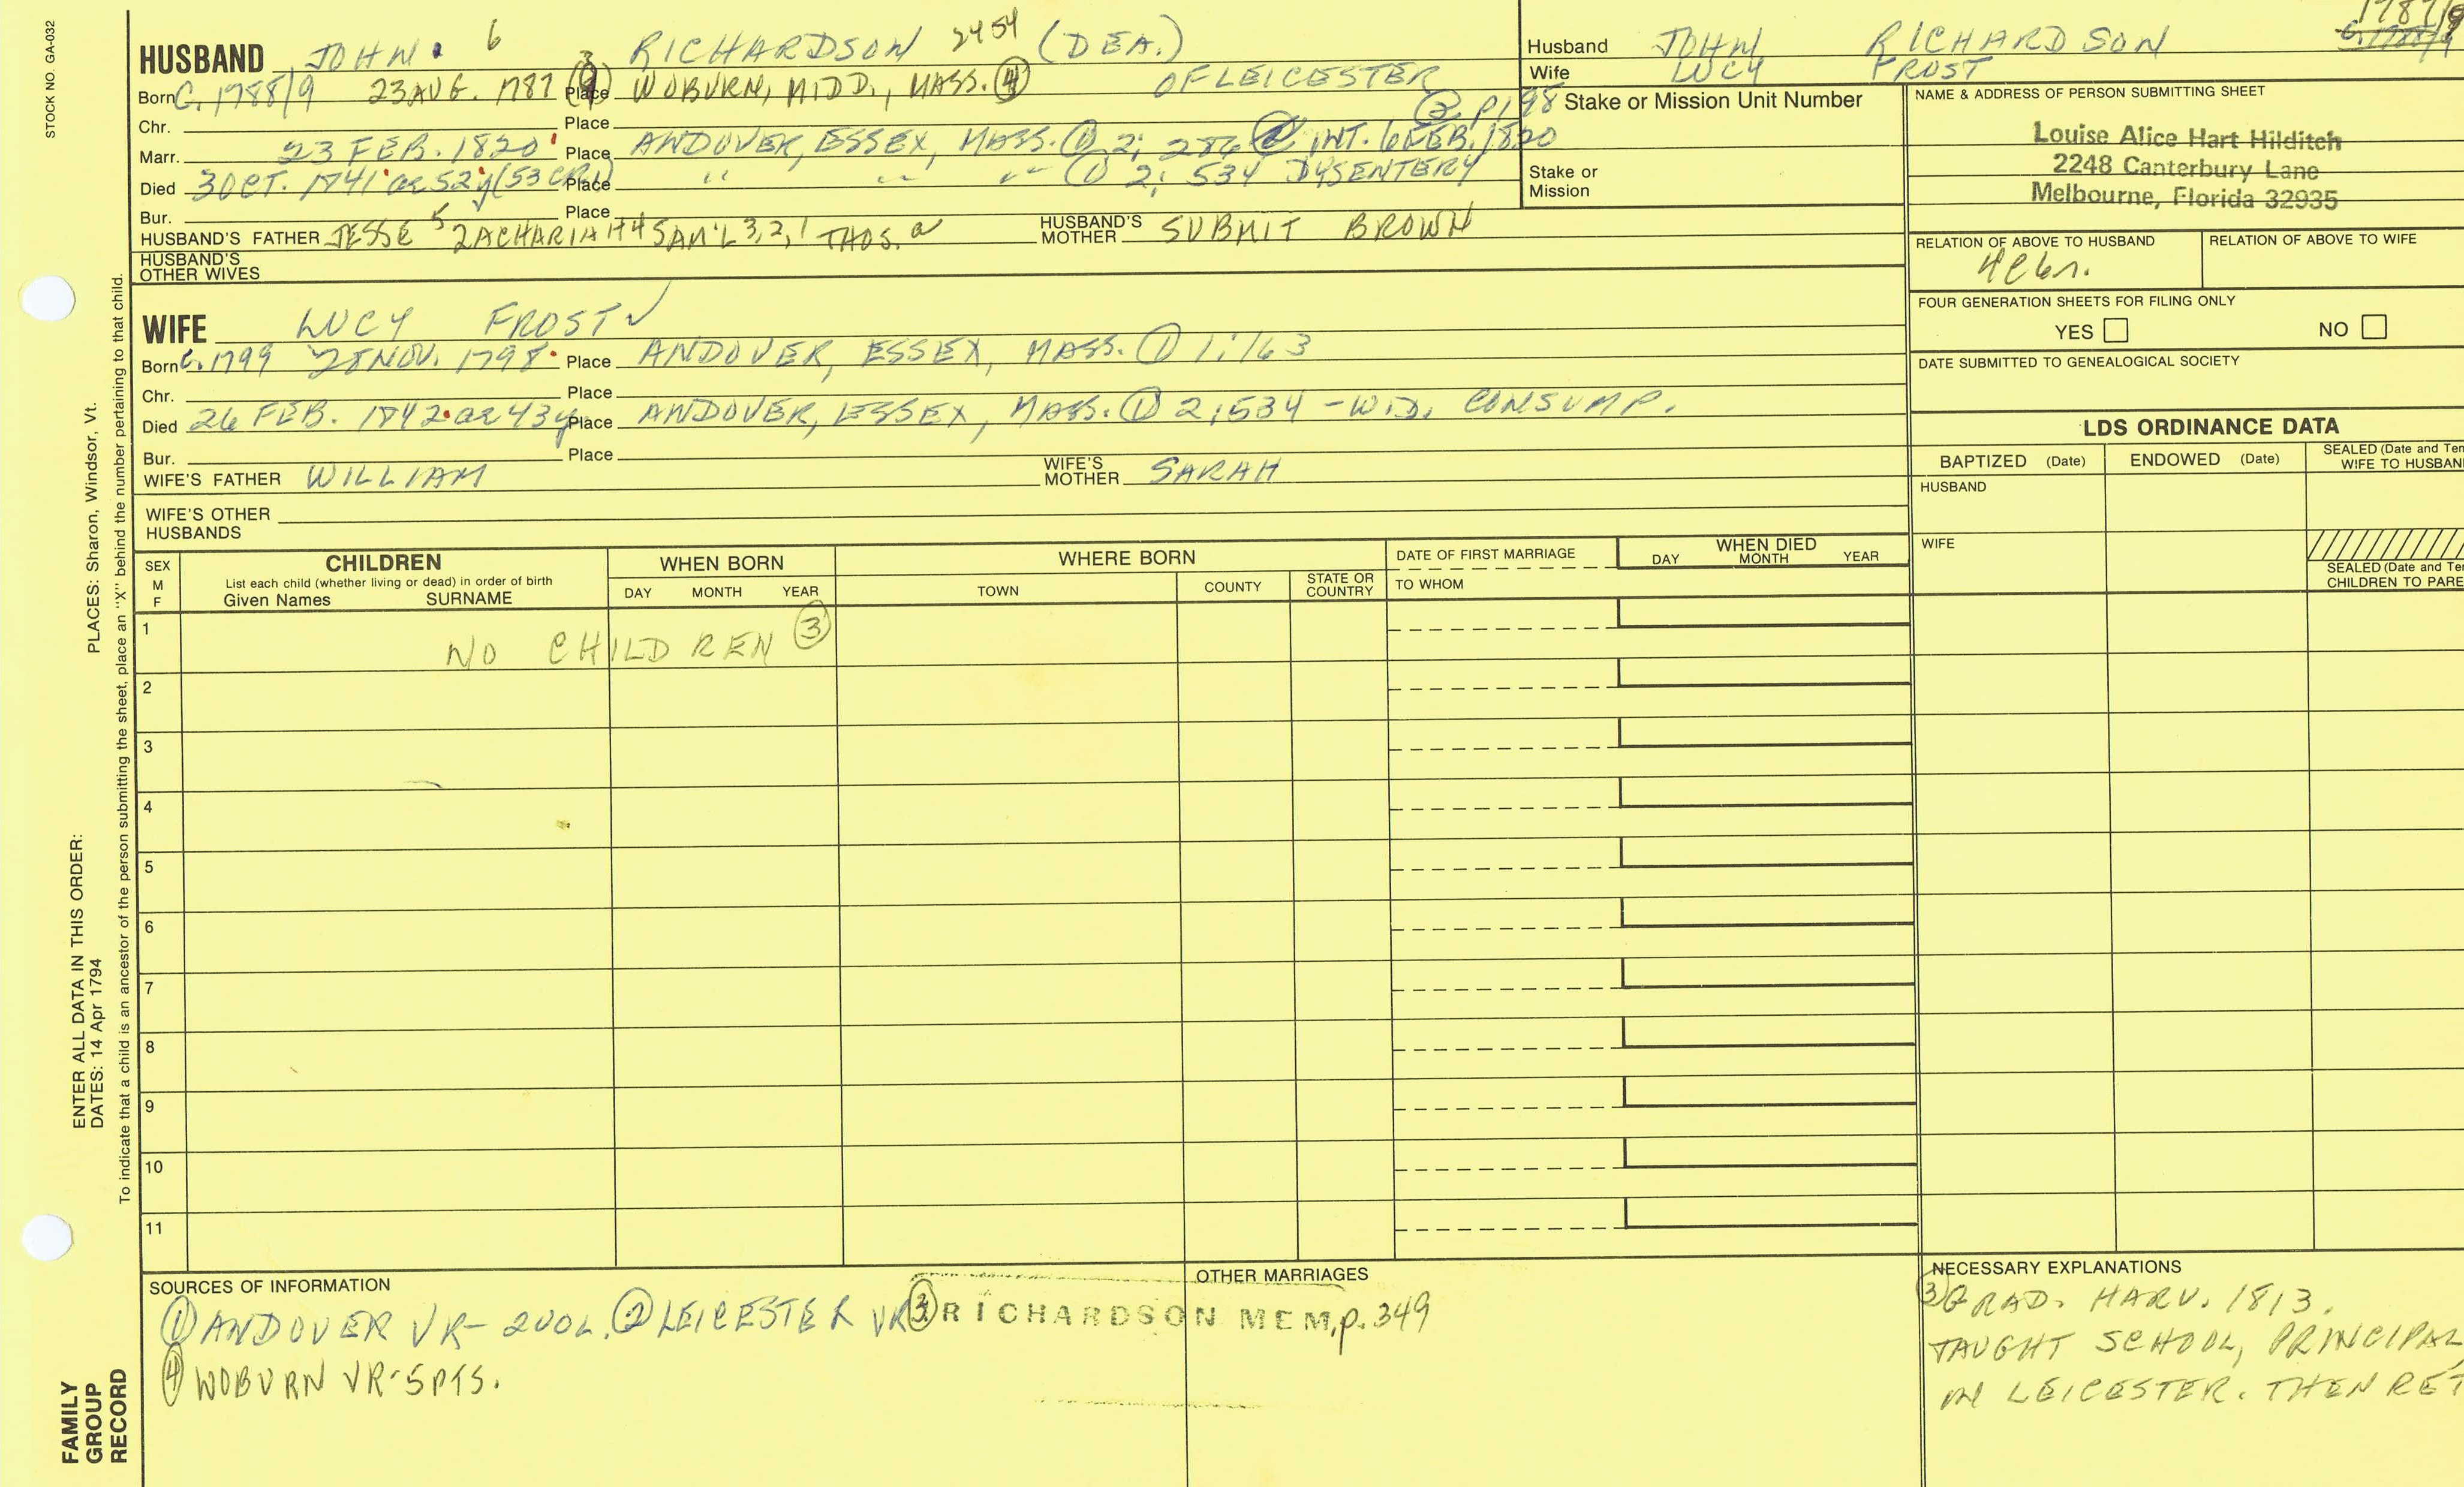 STOCK NO. GA-032
HUSBAND JOHN 6 RICHARDSON 2454 (DEA.)
Born C. 1788/9 23 AUG. 1787 ③ Place WOBURN, MIDD., MASS. ④ OF LEICESTER
Chr. Place ② P198
Marr. 23 FEB. 1820 Place ANDOVER, ESSEX, MASS. ① 2; 286 ② INT. 6 FEB. 1820
Died 3 OCT. 1841 ae 52y (53 CR1) Place " " " ① 2; 534 DYSENTERY
Bur. Place
HUSBAND'S FATHER JESSE 5 ZACHARIAH 4 SAM'L 3, 2, 1 THOS. HUSBAND'S MOTHER SUBMIT BROWN
HUSBAND'S OTHER WIVES
WIFE LUCY FROST ✓
Born C. 1799 28 NOV. 1798 Place ANDOVER, ESSEX, MASS. ① 1; 163
Chr. Place
Died 26 FEB. 1842 ae 43y Place ANDOVER, ESSEX, MASS. ① 2; 534 - WID. CONSUMP.
Bur. Place
WIFE'S FATHER WILLIAM WIFE'S MOTHER SARAH
WIFE'S OTHER HUSBANDS
Husband JOHN RICHARDSON 1787
Wife LUCY FROST
Stake or Mission Unit Number
Stake or Mission
NAME & ADDRESS OF PERSON SUBMITTING SHEET
Louise Alice Hart Hilditch
2248 Canterbury Lane
Melbourne, Florida 32935
RELATION OF ABOVE TO HUSBAND RELATION OF ABOVE TO WIFE
FOUR GENERATION SHEETS FOR FILING ONLY
YES NO
DATE SUBMITTED TO GENEALOGICAL SOCIETY
LDS ORDINANCE DATA
BAPTIZED (Date) ENDOWED (Date) SEALED (Date and Tem
WIFE TO HUSBAN
HUSBAND
WIFE
SEALED (Date and Te
CHILDREN TO PARE
SEX
M
F
CHILDREN
List each child (whether living or dead) in order of birth
Given Names SURNAME
WHEN BORN
DAY MONTH YEAR
WHERE BORN
TOWN COUNTY STATE OR COUNTRY
DATE OF FIRST MARRIAGE
TO WHOM
WHEN DIED
DAY MONTH YEAR
1 NO CHILDREN ③
2
3
4
5
6
7
8
9
10
11
SOURCES OF INFORMATION
① ANDOVER VR- 2VOL. ② LEICESTER VR ③ RICHARDSON MEM, p. 349
④ WOBURN VR-5PTS.
OTHER MARRIAGES
NECESSARY EXPLANATIONS
③ GRAD. HARV. 1813.
TAUGHT SCHOOL, PRINCIPAL
IN LEICESTER. THEN RET
PLACES: Sharon, Windsor, Vt.
To indicate that a child is an ancestor of the person submitting the sheet, place an "X" behind the number pertaining to that child.
ENTER ALL DATA IN THIS ORDER:
DATES: 14 Apr 1794
FAMILY
GROUP
RECORD